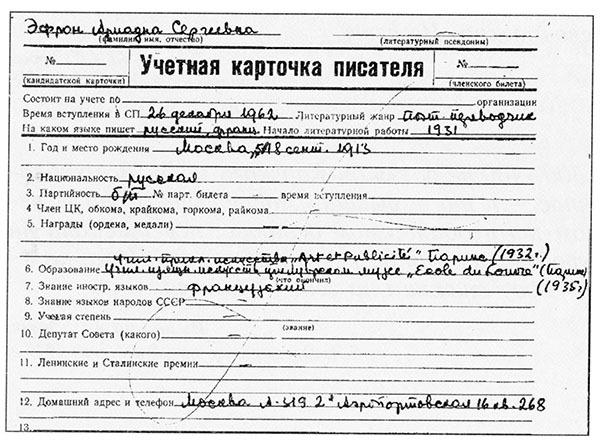 Эфрон Ариадна Сергеевна
(фамилия, имя, отчество) (литературный псевдоним)
№ Учетная карточка писателя №
(кандидатской карточки) (членского билета)
Состоит на учете по организации
Время вступления в СП 26 декабря 1962 Литературный жанр поэт. переводчик
На каком языке пишет русский, франц. Начало литературной работы 1931
1. Год и место рождения Москва, 5/18 сент. 1913
2. Национальность русская
3. Партийность б/п № парт. билета — время вступления —
4 Член ЦК, обкома, крайкома, горкома, райкома —
5. Награды (ордена, медали) —
Учил. прикл. искусства „Art et Publicité" Париж (1932 г.)
6. Образование Учил. изящн. искусств при Луврском музее „Ecole du Louvre" (Париж)
(что окончил)
7. Знание иностр. языков французский (1935 г)
8. Знание языков народов СССР —
9. Ученая степень —
(звание)
10. Депутат Совета (какого) —
11. Ленинские и Сталинские премии —
12. Домашний адрес и телефон Москва А-319 2я Аэропортовская 16 кв. 268
13.